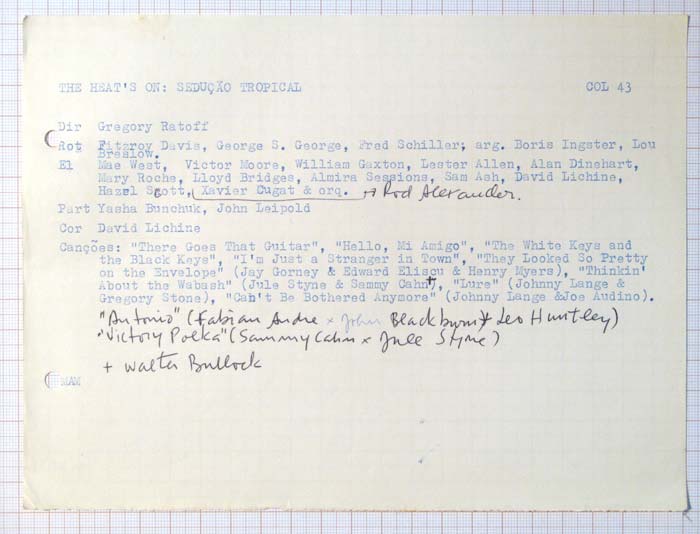 THE HEAT'S ON: SEDUÇÃO TROPICAL COL 43
Dir Gregory Ratoff
Rot Fitzroy Davis, George S. George, Fred Schiller; arg. Boris Ingster, Lou
Breslow.
El Mae West, Victor Moore, William Gaxton, Lester Allen, Alan Dinehart,
Mary Roche, Lloyd Bridges, Almira Sessions, Sam Ash, David Lichine,
Hazel Scott, Xavier Cugat & orq. → Rod Alexander.
Part Yasha Bunchuk, John Leipold
Cor David Lichine
Canções: "There Goes That Guitar", "Hello, Mi Amigo", "The White Keys and
the Black Keys", "I'm Just a Stranger in Town", "They Looked So Pretty
on the Envelope" (Jay Gorney & Edward Eliscu & Henry Myers), "Thinkin'
About the Wabash" (Jule Styne & Sammy Cahn), "Lure" (Johnny Lange &
Gregory Stone), "Can't Be Bothered Anymore" (Johnny Lange &Joe Audino).
"Antonio" (Fabian Andre x John Blackburn x Leo Huntley)
"Victory Polka" (Sammy Cahn x Jule Styne)
+ Walter Bullock
MAM